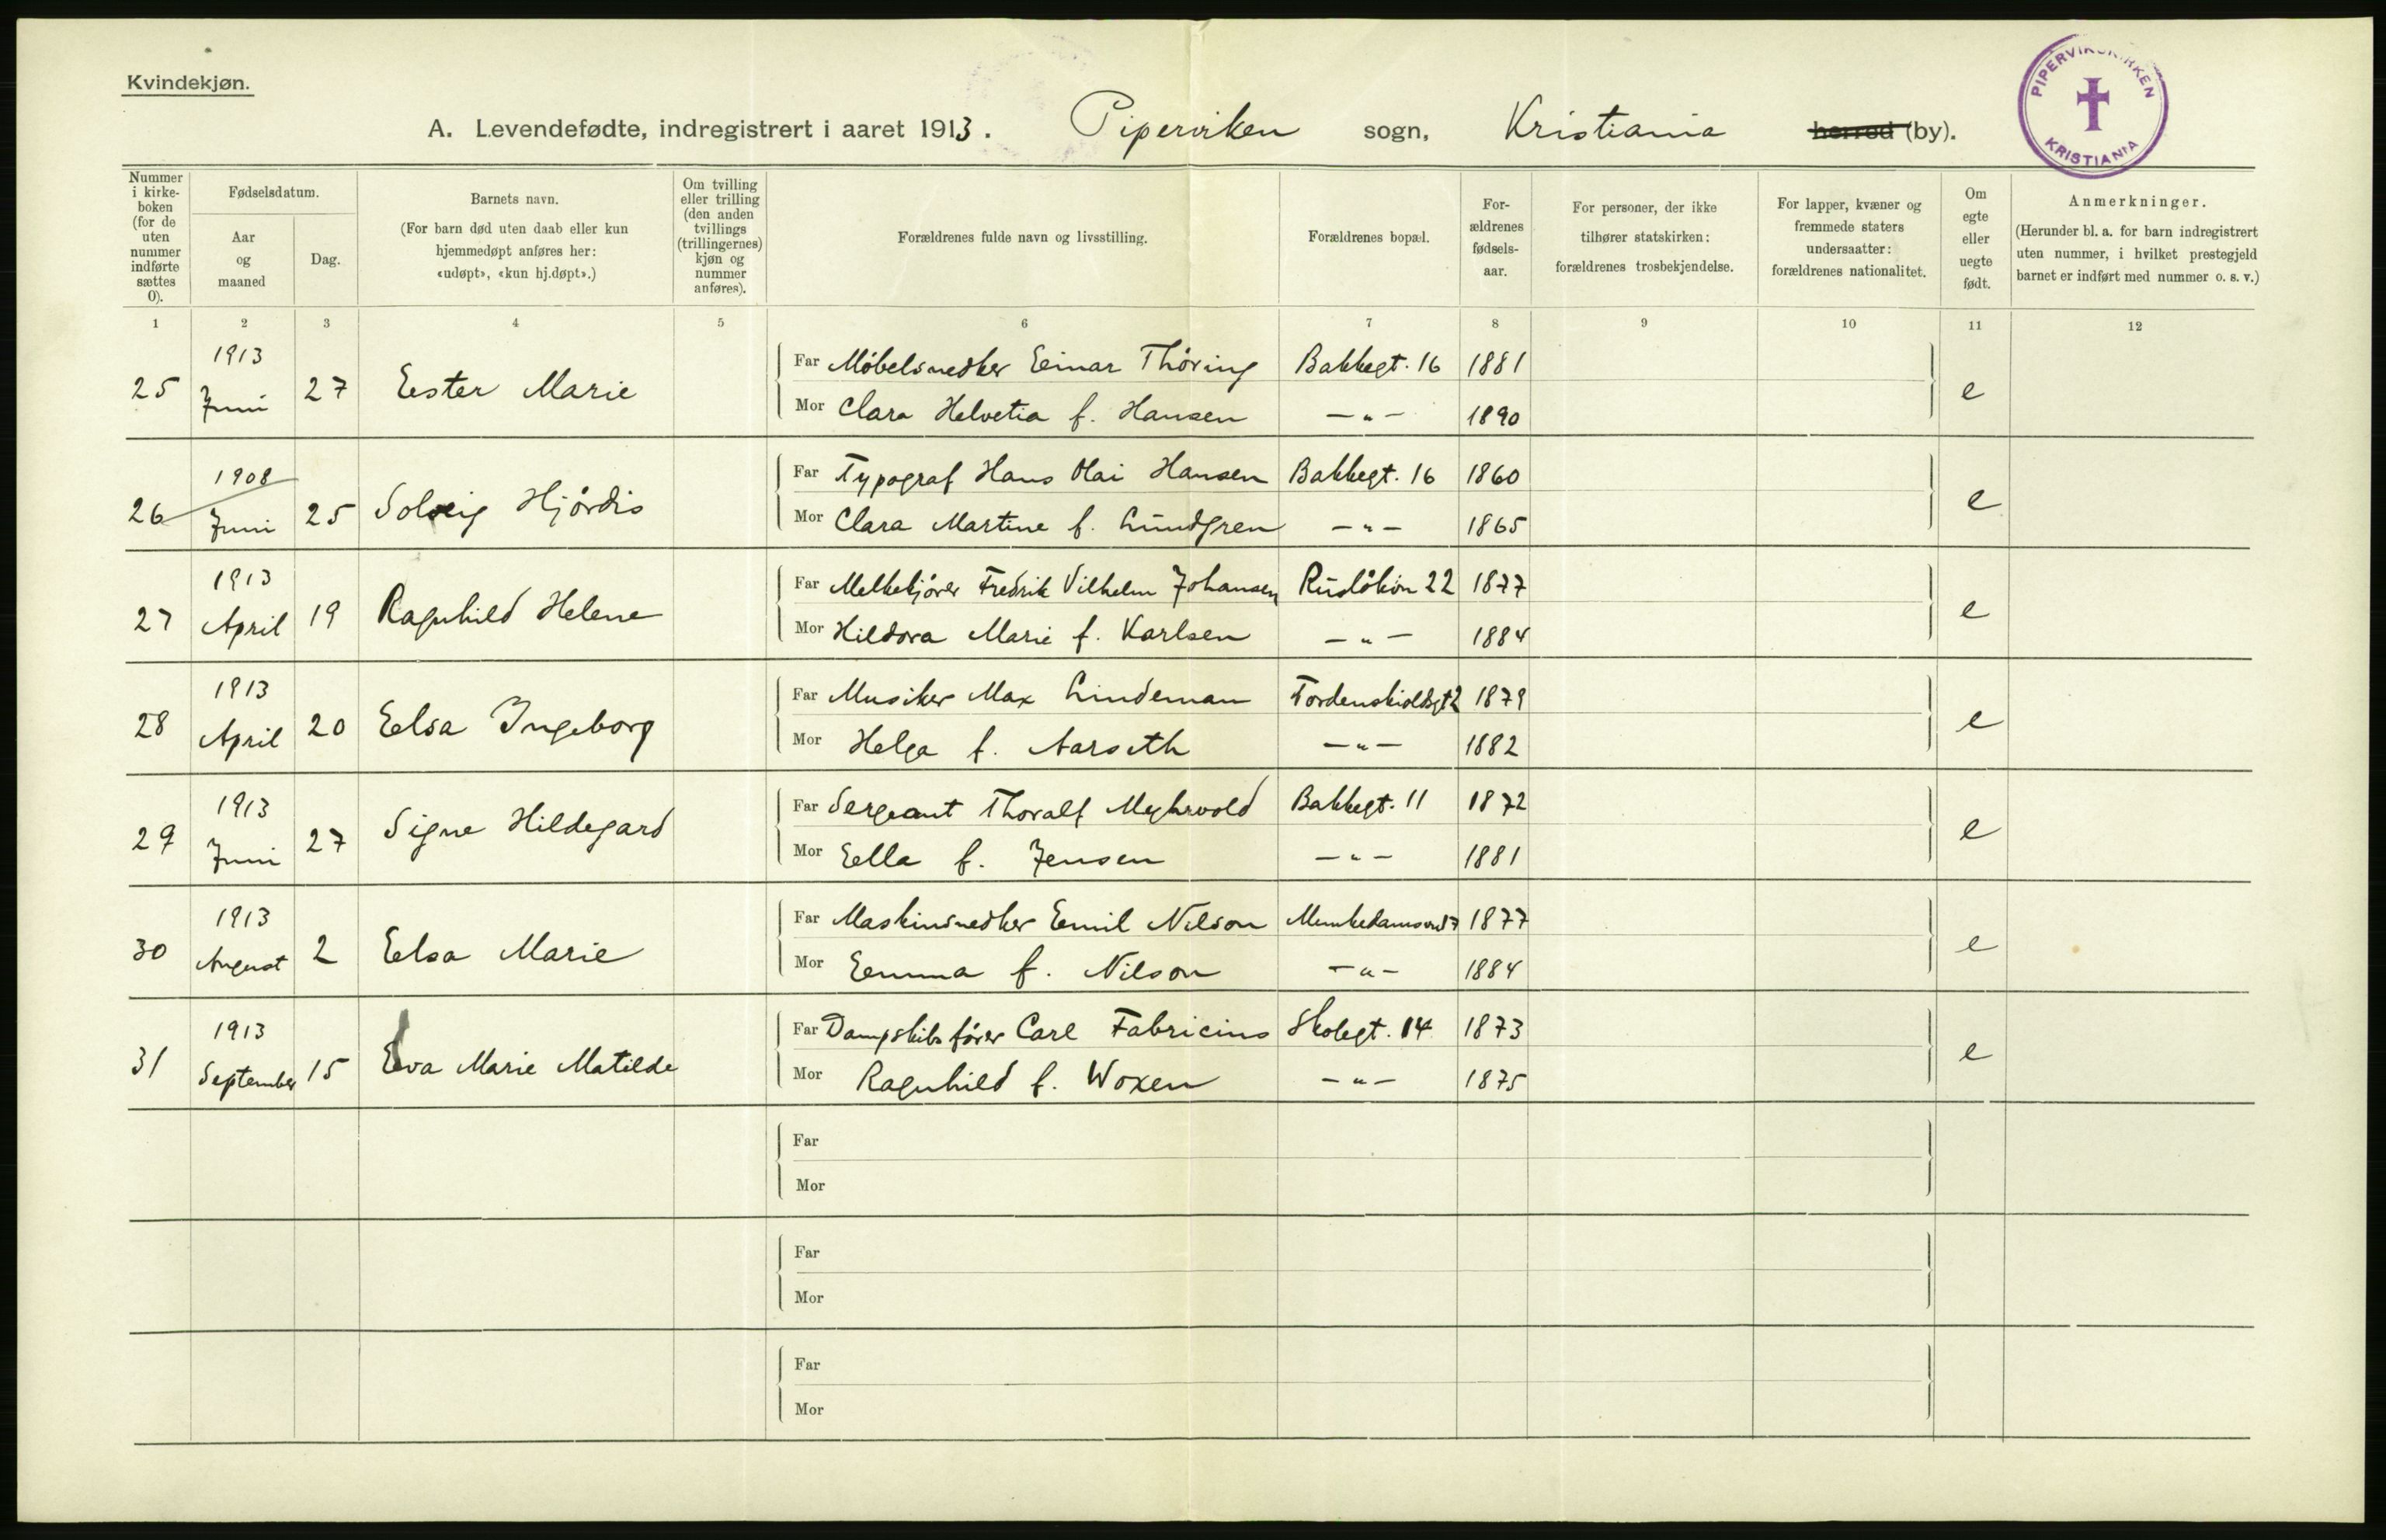 Kvindekjøn.
A. Levendefødte, indregistrert i aaret 1913. Piperviken sogn, Kristiania herred (by).
PIPERVIKSKIRKEN
KRISTIANIA
Nummer i kirke-boken (for de uten nummer indførte sættes 0).
Fødselsdatum.
Aar og maaned
Dag.
Barnets navn.
(For barn død uten daab eller kun hjemmedøpt anføres her: «udøpt», «kun hj.døpt».)
Om tvilling eller trilling (den anden tvillings (trillingernes) kjøn og nummer anføres).
Forældrenes fulde navn og livsstilling.
Forældrenes bopæl.
For-ældrenes fødsels-aar.
For personer, der ikke tilhører statskirken: forældrenes trosbekjendelse.
For lapper, kvæner og fremmede staters undersaatter: forældrenes nationalitet.
Om egte eller uegte født.
Anmerkninger.
(Herunder bl. a. for barn indregistrert uten nummer, i hvilket prestegjeld barnet er indført med nummer o. s. v.)
1 2 3 4 5 6 7 8 9 10 11 12
25 1913 Juni 27 Ester Marie e
Far Møbelsnedker Einar Thøring Bakkegt. 16 1881
Mor Clara Helvetia f. Hansen —"— 1890
26 1908 Juni 25 Solveig Hjørdis e
Far Typograf Hans Olai Hansen Bakkegt. 16 1860
Mor Clara Martine f. Lundgren —"— 1865
27 1913 April 19 Ragnhild Helene e
Far Melkekjører Fredrik Vilhelm Johansen Rusløkvn 22 1877
Mor Hildora Marie f. Karlsen —"— 1884
28 1913 April 20 Elsa Ingeborg e
Far Musiker Max Lindeman Tordenskioldsgt 2 1879
Mor Helga f. Aarseth —"— 1882
29 1913 Juni 27 Signe Hildegard e
Far Sergeant Thoralf Myhrvold Bakkegt. 11 1872
Mor Ella f. Jensen —"— 1881
30 1913 August 2 Elsa Marie e
Far Maskinsnedker Emil Nilson 1877
Mor Emma f. Nilson —"— 1884
31 1913 September 15 Eva Marie Matilde e
Far Dampskibsfører Carl Fabricius Skolegt. 14 1873
Mor Ragnhild f. Woxen —"— 1875
Far
Mor
Far
Mor
Far
Mor